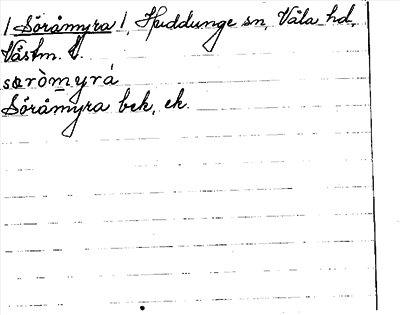 /Söråmyra/, Huddunge sn, Våla hd,
Västm. l.
sœ̀ròmyrá
Söråmyra bek, ek.